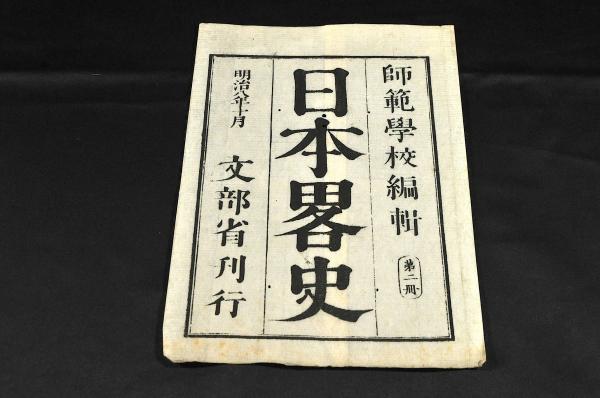 師範學校編輯
第二冊
日本畧史
明治八年十月
文部省刊行